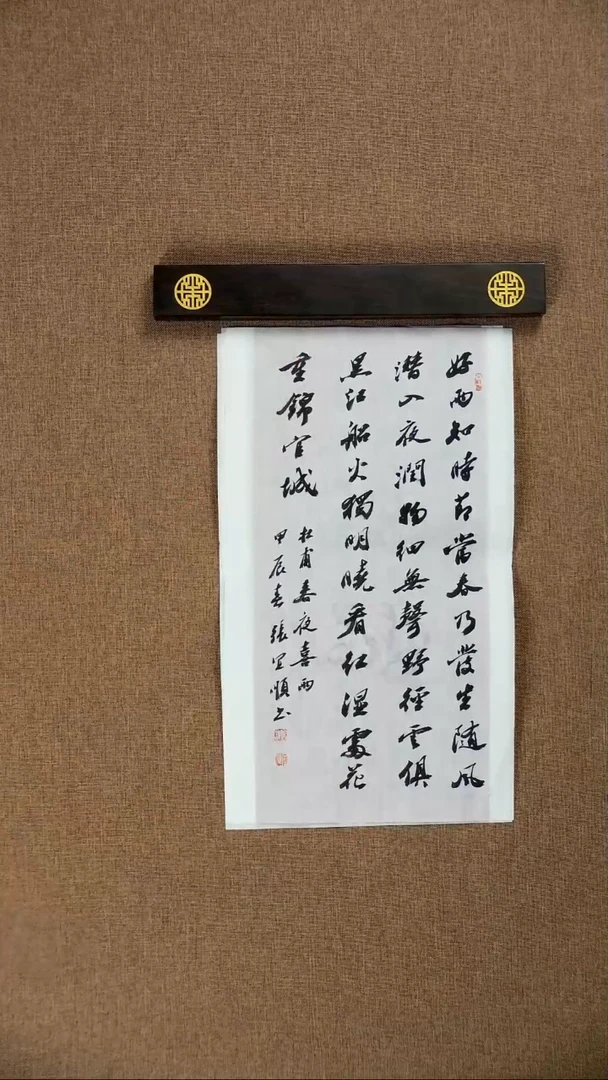 好雨知時节當春乃發生随风
潛入夜潤物细無聲野徑云俱
黑江船火獨明曉看红湿處花
重錦官城
杜甫春夜喜雨
甲辰春張宜順书